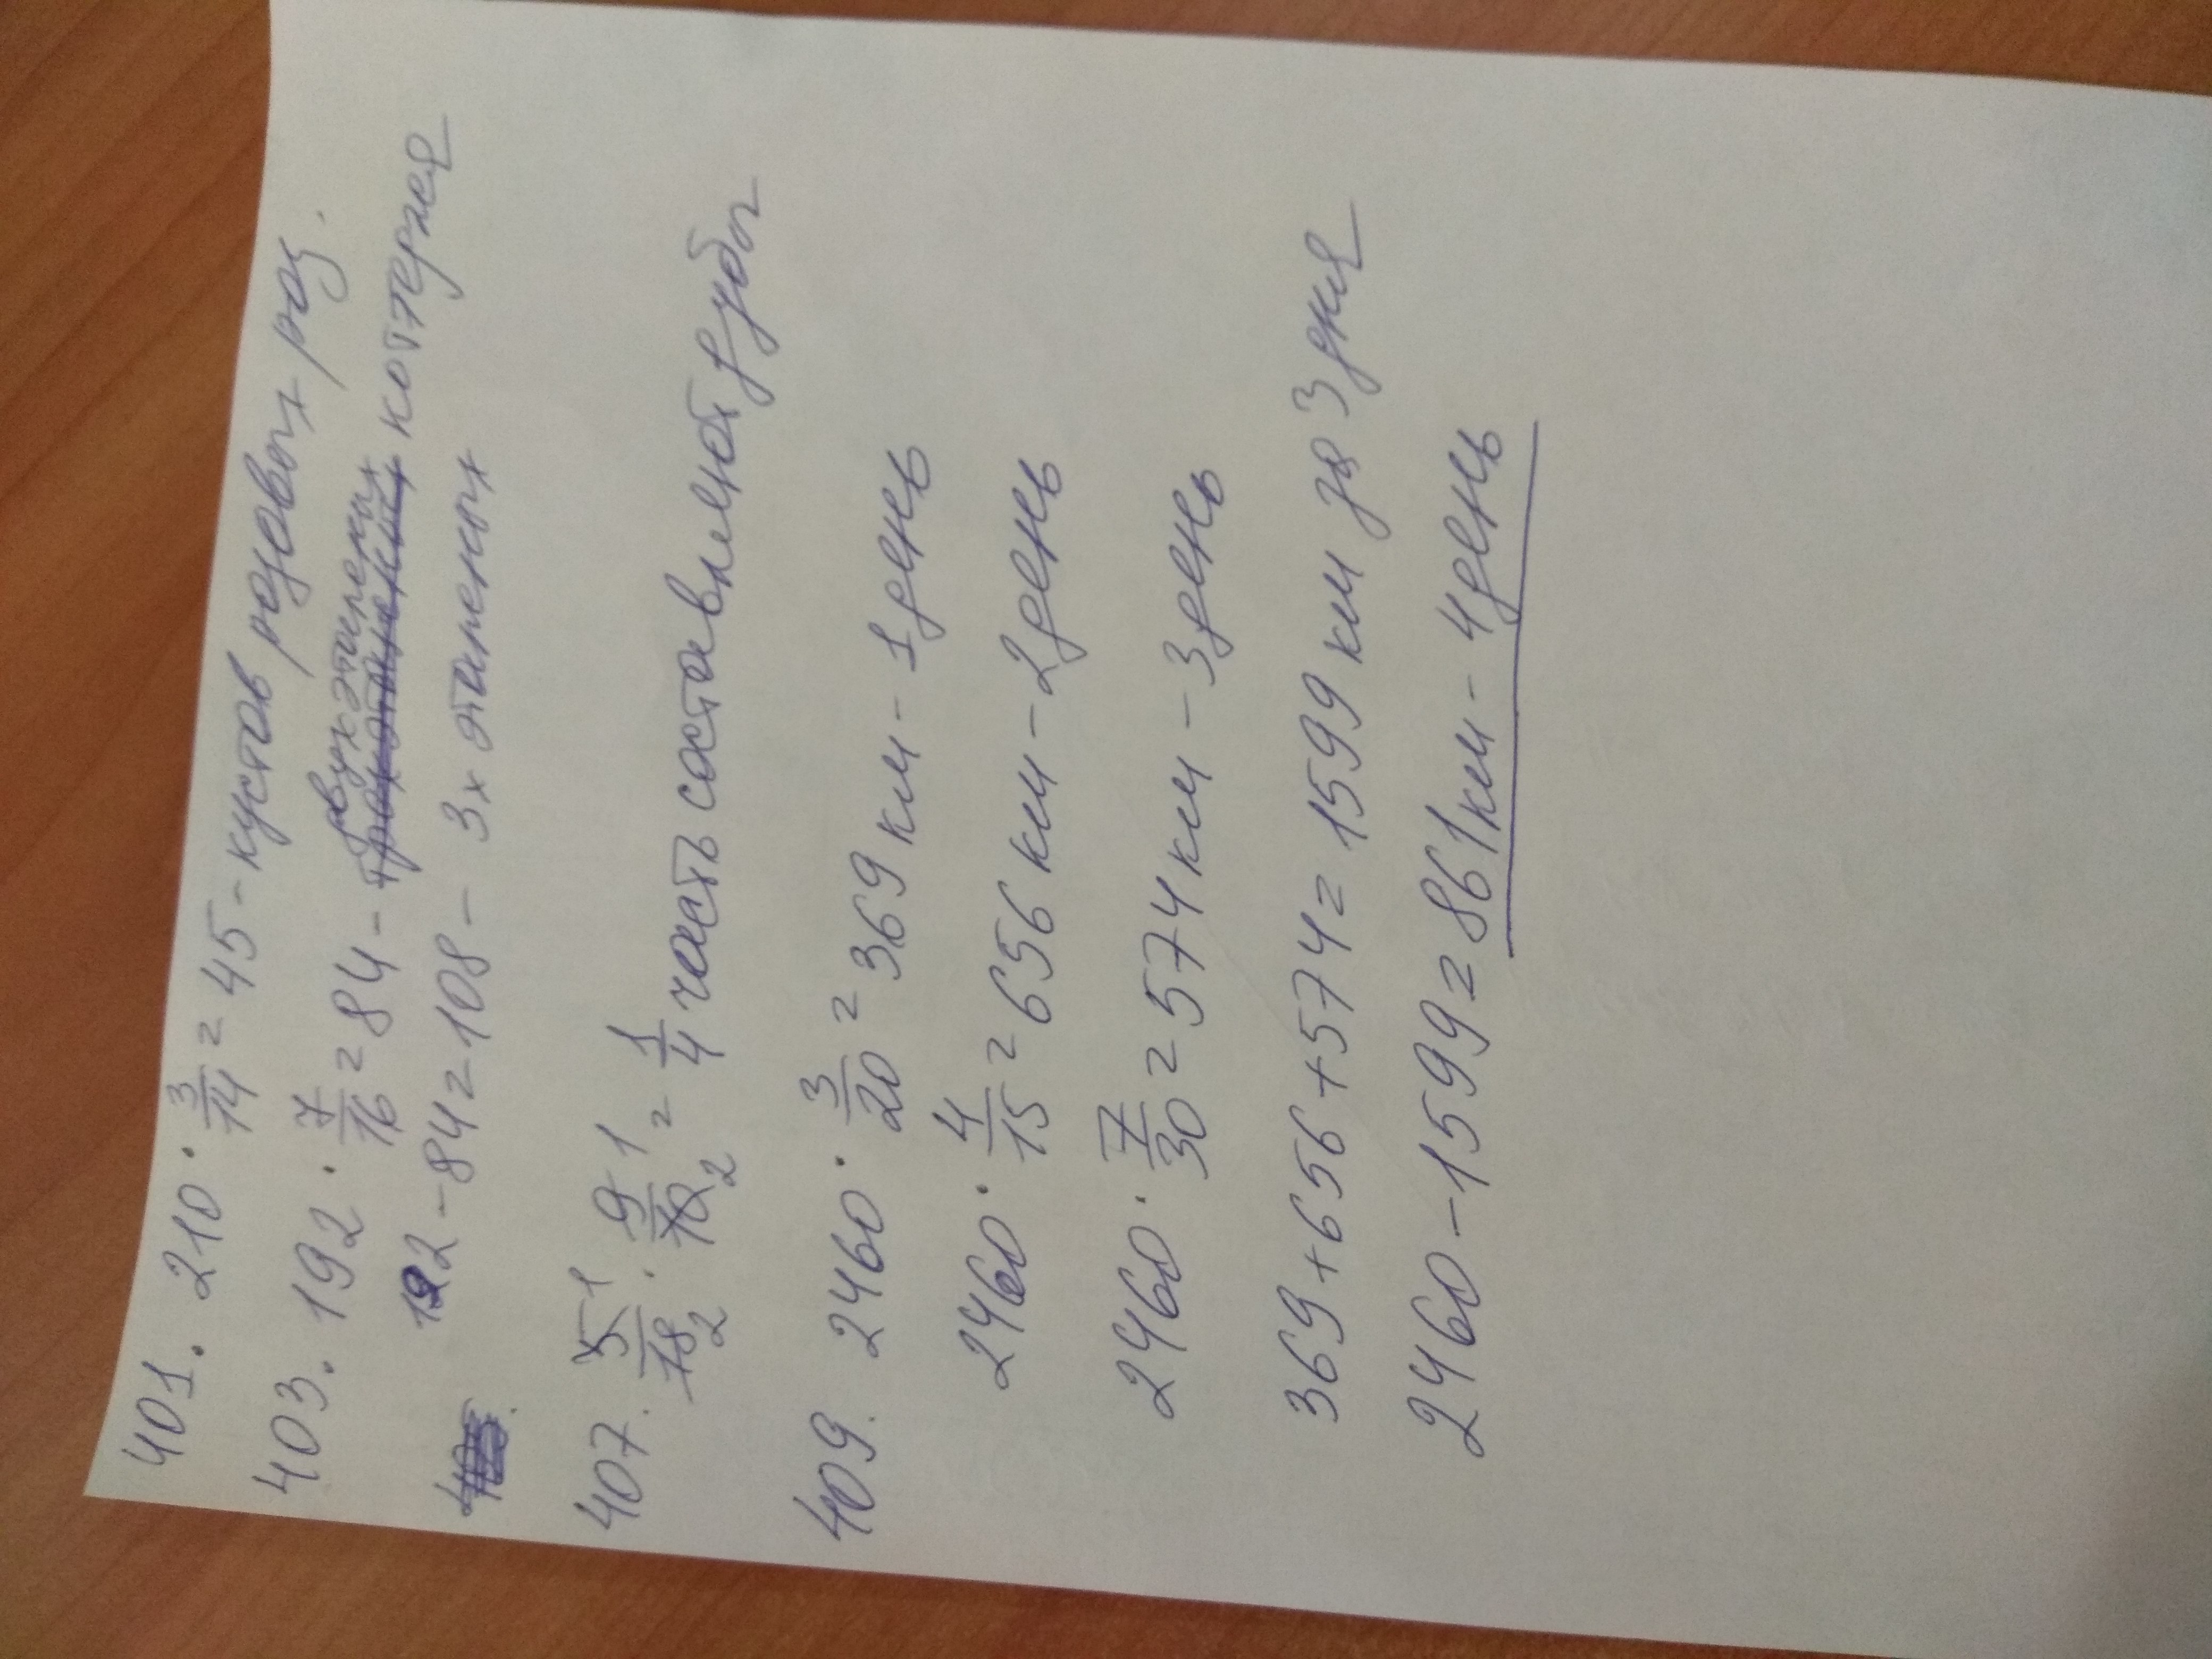 401. 210 · 3/14 = 45 - кустов розовых роз.
403. 192 · 7/16 = 84 - двухэтажных коттеджей
192 - 84 = 108 - 3х этажных
407. 5/18 1 2 · 9/10 1 2 = 1/4 часть составляет дубы
409. 2460 · 3/20 = 369 км - 1 день
2460 · 4/15 = 656 км - 2 день
2460 · 7/30 = 574 км - 3 день
369 + 656 + 574 = 1599 км за 3 дня
2460 - 1599 = 861 км - 4 день